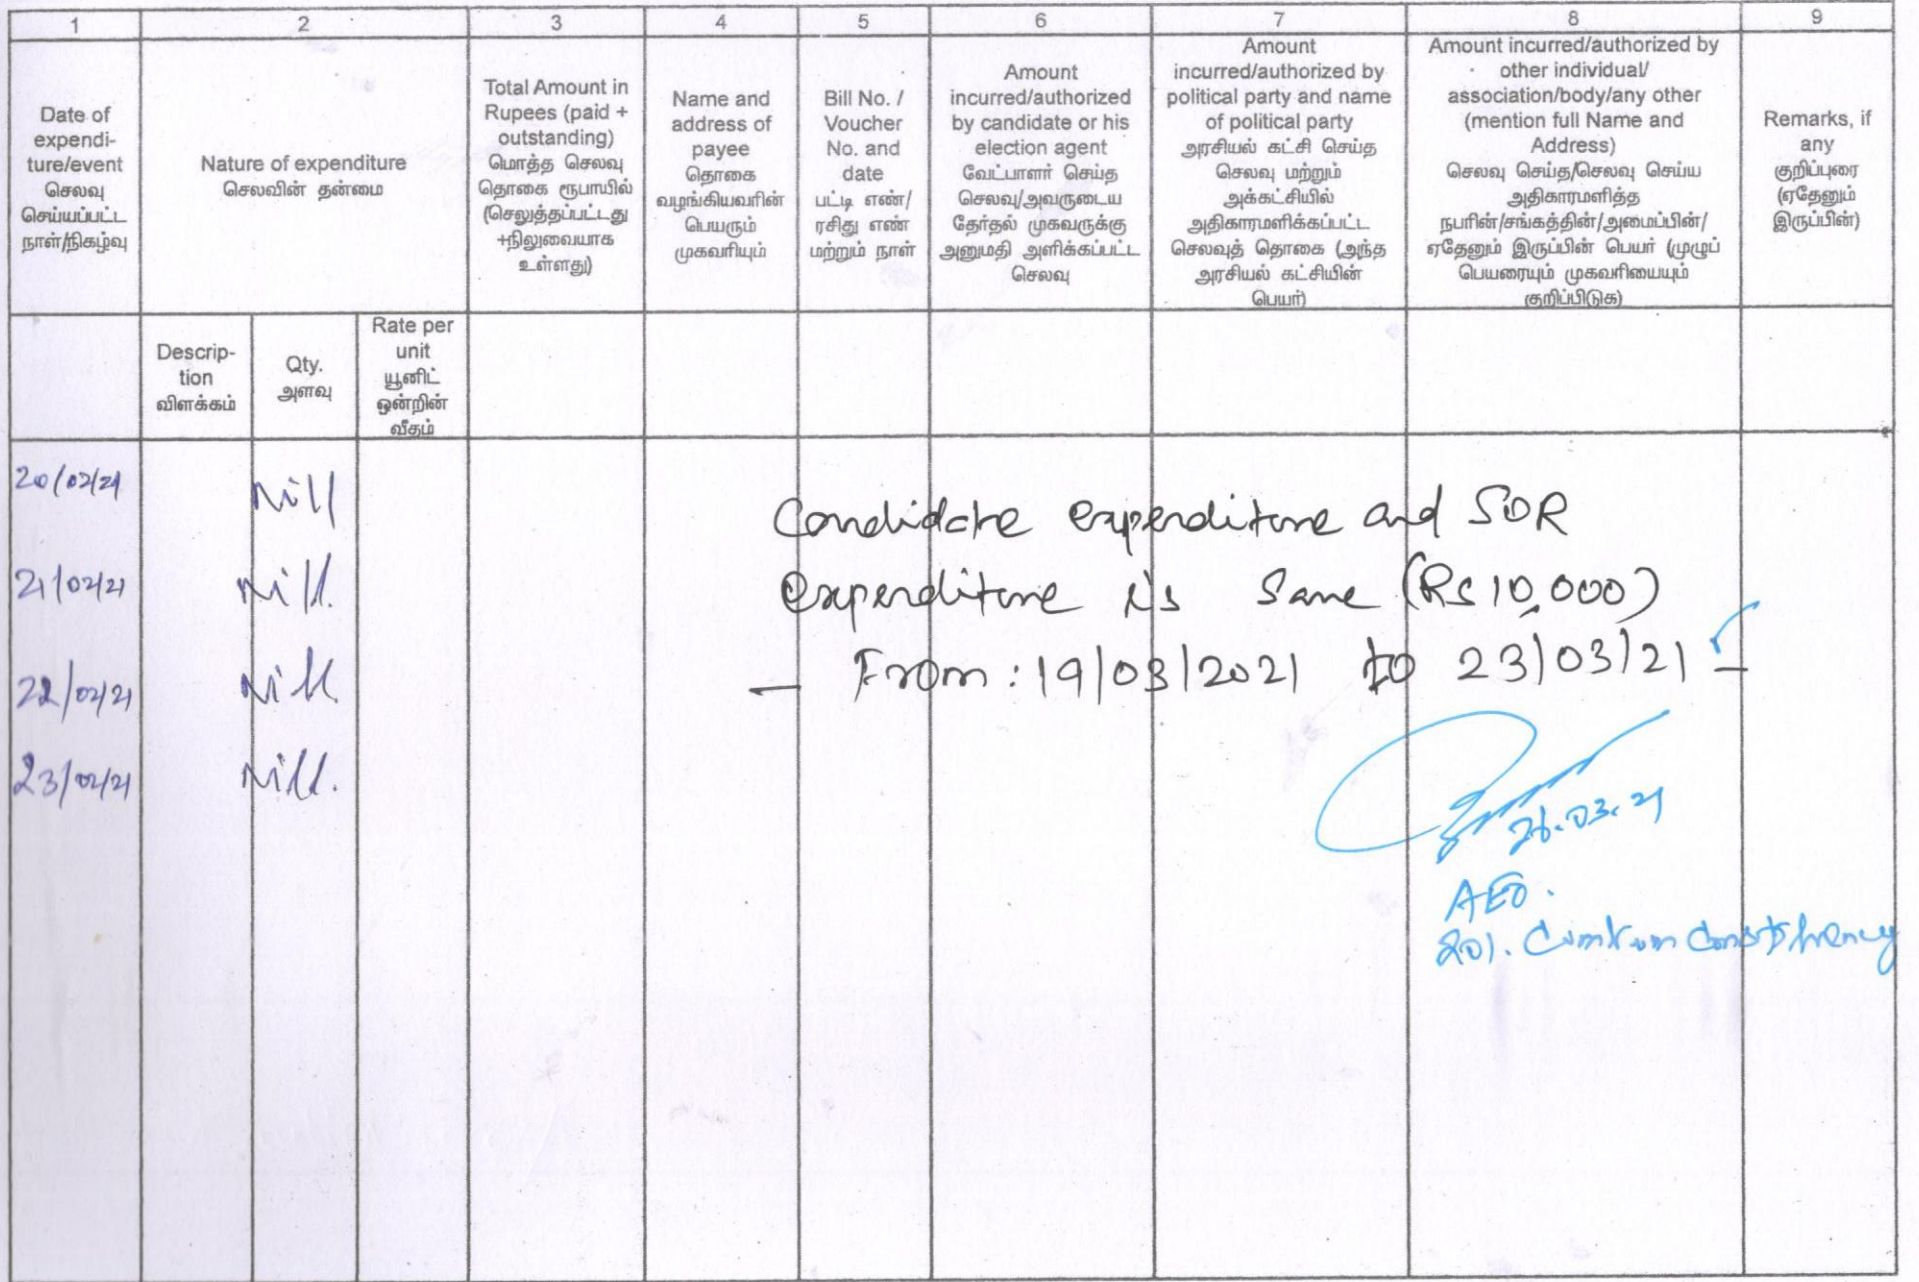 1 2 3 4 5 6 7 8 9
Date of
expendi-
ture/event
செலவு
செய்யப்பட்ட
நாள்/நிகழ்வு
Nature of expenditure
செலவின் தன்மை
Total Amount in
Rupees (paid +
outstanding)
மொத்த செலவு
தொகை ரூபாயில்
(செலுத்தப்பட்டது
+நிலுவையாக
உள்ளது)
Name and
address of
payee
தொகை
வழங்கியவரின்
பெயரும்
முகவரியும்
Bill No. /
Voucher
No. and
date
பட்டி எண்/
ரசிது எண்
மற்றும் நாள்
Amount
incurred/authorized
by candidate or his
election agent
வேட்பாளர் செய்த
செலவு/அவருடைய
தேர்தல் முகவருக்கு
அனுமதி அளிக்கப்பட்ட
செலவு
Amount
incurred/authorized by
political party and name
of political party
அரசியல் கட்சி செய்த
செலவு மற்றும்
அக்கட்சியில்
அதிகாரமளிக்கப்பட்ட
செலவுத் தொகை (அந்த
அரசியல் கட்சியின்
பெயர்)
Amount incurred/authorized by
other individual/
association/body/any other
(mention full Name and
Address)
செலவு செய்த/செலவு செய்ய
அதிகாரமளித்த
நபரின்/சங்கத்தின்/அமைப்பின்/
ஏதேனும் இருப்பின் பெயர் (முழுப்
பெயரையும் முகவரியையும்
குறிப்பிடுக)
Remarks, if
any
குறிப்புரை
(ஏதேனும்
இருப்பின்)
Descrip-
tion
விளக்கம்
Qty.
அளவு
Rate per
unit
யூனிட்
ஒன்றின்
வீதம்
20/02/21 Nill
21/02/21 Nill.
22/02/21 Nill
23/02/21 Nill.
Candidate expenditure and SOR
expenditure is Same (Rs 10,000)
- From : 19/03/2021 to 23/03/21 -
26.03.21
AEO.
201. Cumbum Constituency